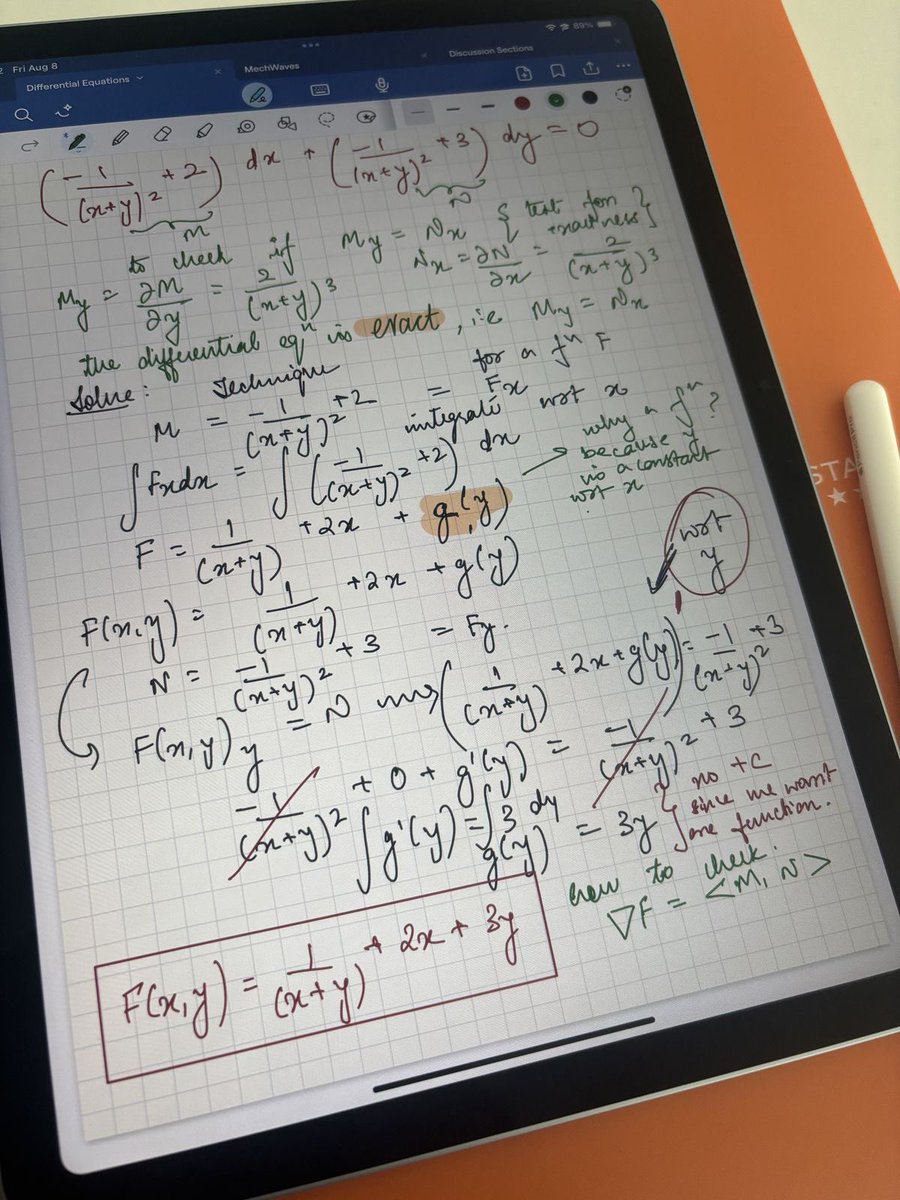 2 Fri Aug 8
89%
Differential Equations
MechWaves
Discussion Sections
(-1/(x+y)² + 2) dx + (-1/(x+y)² + 3) dy = 0
M
N
to check if My = Nx { test for exactness }
My = ∂M/∂y = 2/(x+y)³
Nx = ∂N/∂x = 2/(x+y)³
the differential eqⁿ is exact, i.e My = Nx
Solve: Technique
for a fⁿ F
M = -1/(x+y)² + 2 = Fx
integrate wrt x
∫Fxdx = ∫(-1/(x+y)² + 2) dx
why a fⁿ?
because y
is a constant
wrt x
F = 1/(x+y) + 2x + g(y)
wrt
y
F(x,y) = 1/(x+y) + 2x + g(y)
N = -1/(x+y)² + 3 = Fy.
F(x,y)y = N ⇝ (1/(x+y) + 2x + g(y))' = -1/(x+y)² + 3
-1/(x+y)² + 0 + g'(y) = -1/(x+y)² + 3
∫g'(y) = ∫3 dy
g(y) = 3y
{ no +C
since we want
one function.
how to check.
∇F = <M, N>
F(x,y) = 1/(x+y) + 2x + 3y
STA